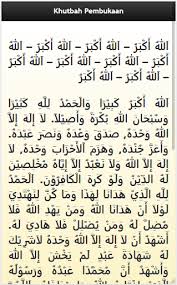 Khutbah Pembukaan
اَللهُ أَكْبَرَ – اَللهُ أَكْبَرَ – اَللهُ
أَكْبَرَ – اَللهُ أَكْبَرَ – اَللهُ أَكْبَرَ
– اَللهُ أَكْبَرَ – اَللهُ أَكْبَرَ – اَللهُ
أَكْبَرَ – اَللهُ أَكْبَرَ
اَللهُ أَكْبَرُ كَبِيْرًا وَالْحَمْدُ لِلَّهِ كَثِيْرًا
وَسُبْحَانَ اللهِ بُكْرَةً وَأَصِيْلًا، لا إله إلاَّ
اللهُ وَحْدَهُ، صَدَقَ وَعْدَهُ وَنَصَرَ عَبْدَهُ،
وَأَعَزَّ جُنْدَهُ، وَهَزَمَ الأَحْزَابَ وَحْدَهُ، لا
إله إلاَّ اللهُ وَلاَ نَعْبُدُ إِلاَّ إِيَّاهُ مُخْلِصِيْنَ
لَهُ الدِّيْنَ وَلَوْ كَرِهَ الْكَافِرُوْنَ. اَلْحَمْدُ
لِلَّهِ الَّذِيْ هَدَانَا لِهَذَا وَمَا كُنَّا لِنَهْتَدِيَ
لَوْلاَ أَنْ هَدَانَا اللهُ وَمَنْ يَهْدِ اللهُ فَلاَ
مُضِلَّ لَهُ وَمَنْ يُضْلِلْ فَلاَ هَادِيَ لَهُ.
أَشْهَدُ أَنْ لا إله إلاَّ اللهُ وَحْدَهُ لاَشَرِيْكَ
لَهُ شَهَادَةَ عَبْدٍ لَمْ يَخْشَ إِلاَّ اللهَ
وَأَشْهَدُ أَنَّ مُحَمَّدًا عَبْدُهُ وَرَسُوْلُهُ